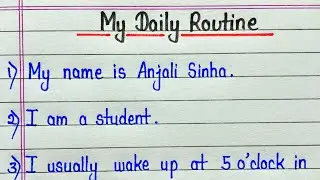 My Daily Routine
1) My name is Anjali Sinha.
2) I am a student.
3) I usually wake up at 5 o'clock in